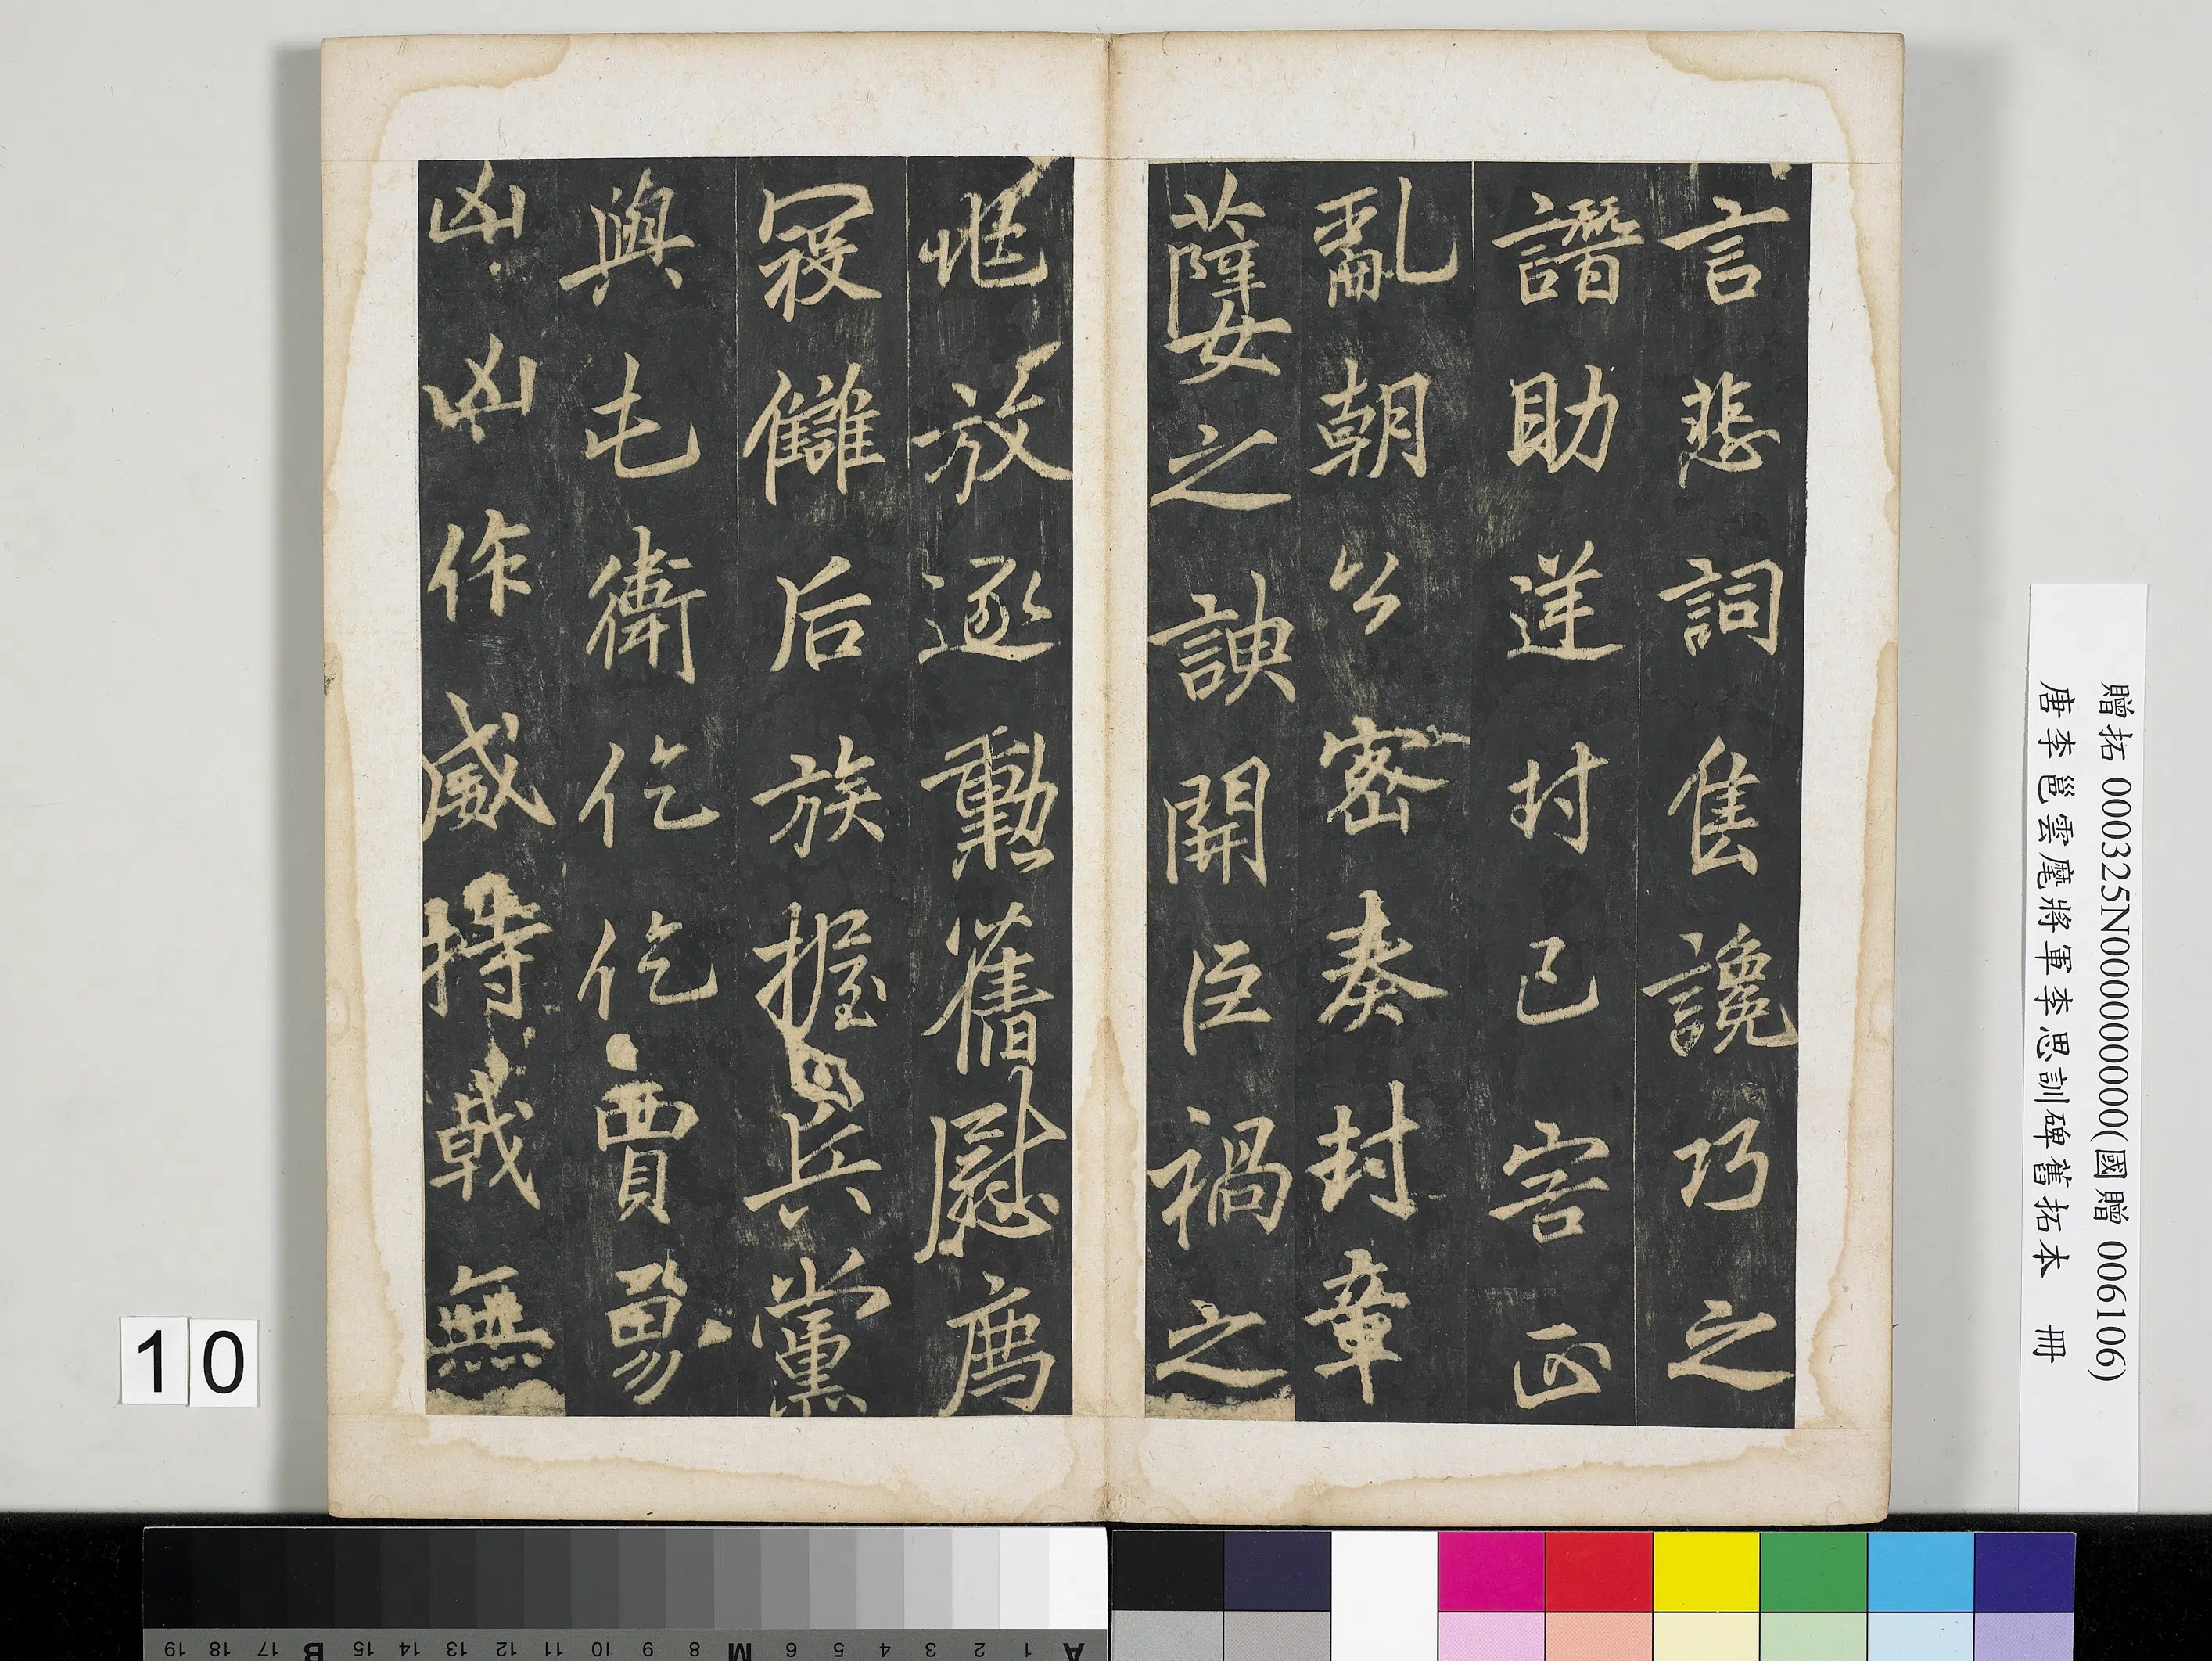 言悲詞售讒巧之
譖助逆封己害正
亂朝公密奏封章
孽之諛開臣禍之
兆放逐勳舊慰薦
寇讎后族握兵黨
與屯衛仡仡賈勇
凶凶作威持戟無
贈拓 000325N000000000(國贈 006106)
唐李邕雲麾將軍李思訓碑舊拓本 冊
10
A 1 2 3 4 5 6 M 8 9 10 11 12 13 14 15 B 17 18 19